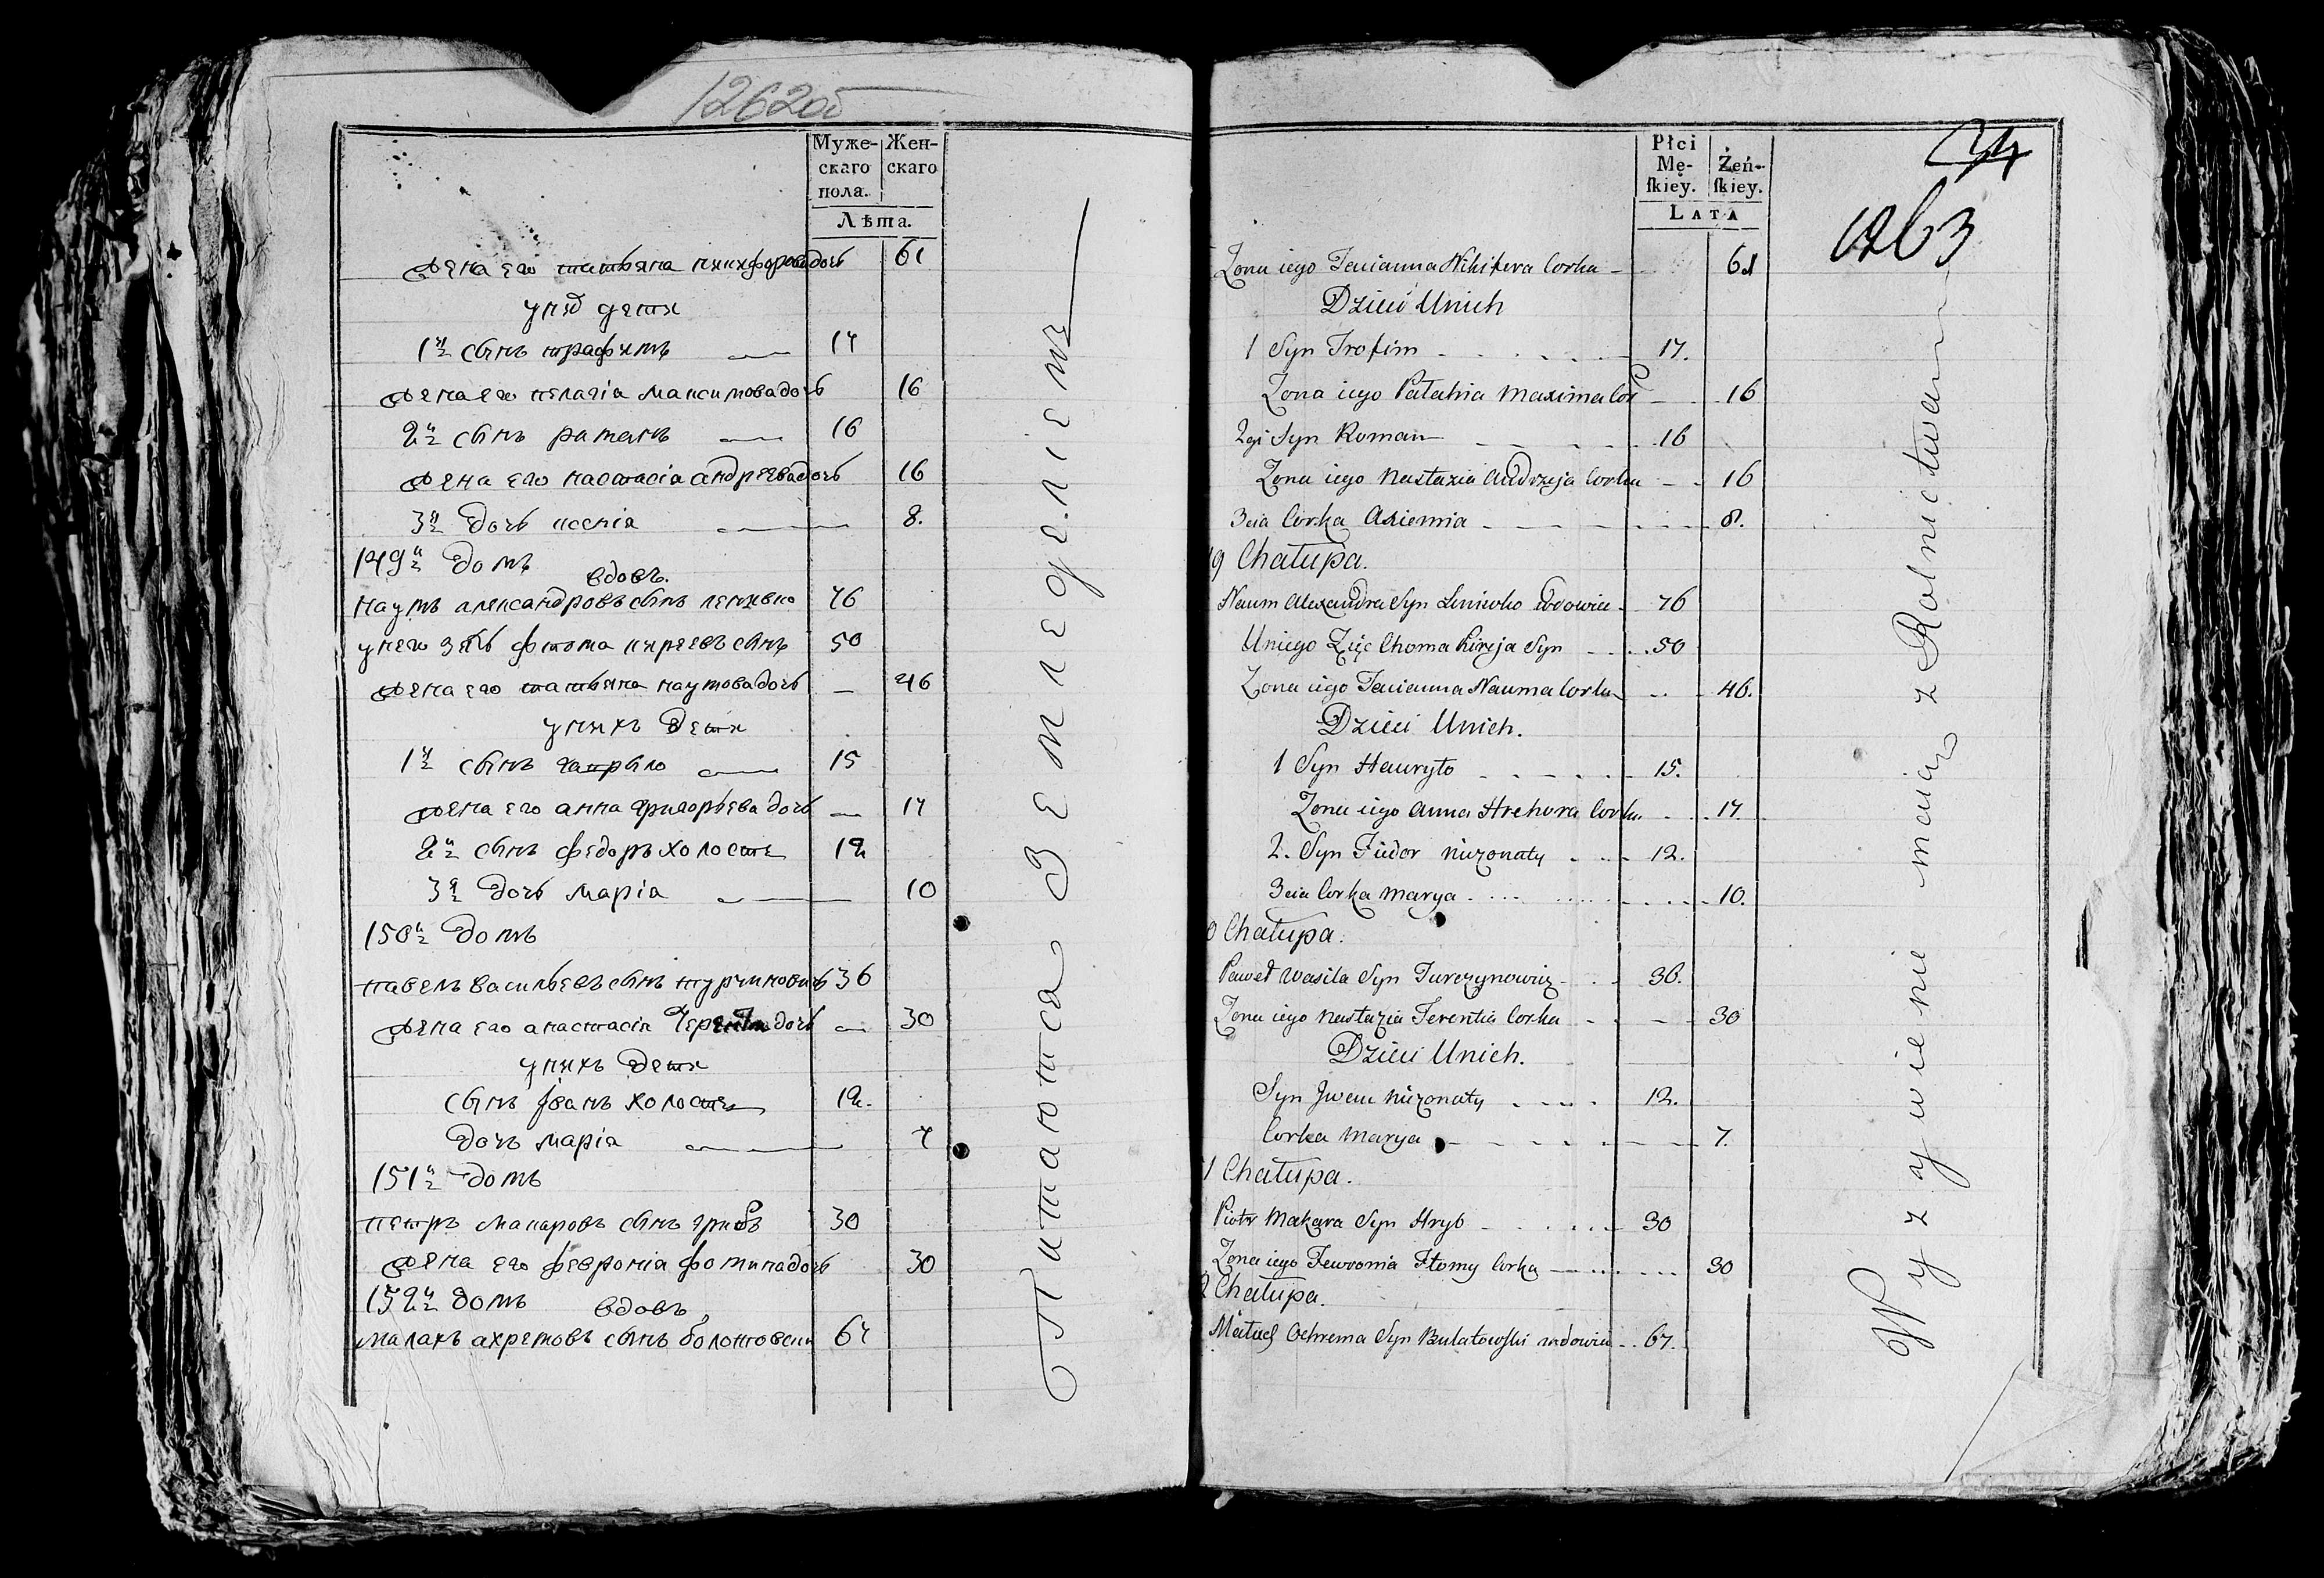 1262об
Муже-
скаго
пола.
Жен-
скаго
Лѣта.
жена его татьяна никифорова дочь 61
у них дети
1й сынъ трафимъ 17
жена его пелагіа максимова дочь 16
2й сынъ раманъ 16
жена его настасіа андреева дочь 16
3я дочь ксеніа 8.
149й домъ
вдовъ.
наумъ александровъ сынъ леневко 76
у него зять фтома киреевъ сынъ 50
жена его татьяна наумова дочь 46
у нихъ дети
1й сынъ гаврыло 15
жена его анна григорьева дочь 17
2й сынъ федоръ холостъ 12
3я дочь маріа 10
150й домъ
павелъ васильевъ сынъ турчиновичъ 36
жена его анастасіа дочь 30
у нихъ дети
сынъ Іванъ холостъ 12.
дочь маріа 7
151й домъ
петръ макаровъ сынъ грибъ 30
жена его февроніа фомина дочь 30
152й домъ
вдовъ
малахъ ахремовъ сынъ болотовски 67
Питаются Земледелiемъ
Płci
Mę-
ſkiey.
Żeń-
ſkiey.
LATA
34
1263
Zona iego Tacianna Nikifera Corka 61
Dzieci Unich
1 Syn Trofim 17.
Zona iego Pałahia Maxima Cor 16
2gi Syn Roman 16
Zona iego Nastazia Andrzeja Corka 16
3cia Corka Axiemia 8.
9 Chałupa.
Naum Alexandra Syn Leniewko wdowiec 76
Uniego Zięc Choma Kireja Syn 50
Zona iego Tacianna Nauma Corka 46.
Dzieci Unich.
1 Syn Hawryło 15.
Zona iego Anna Hrehora Corka 17.
2. Syn Fiedor niezonaty 12.
3cia Corka Marya 10.
0 Chałupa.
Paweł Wasila Syn Turczynowicz 36.
Zona iego Nastazia Terentia Corka 30
Dzieci Unich.
Syn Jwan niezonaty 12.
Corka Marya 7.
1 Chałupa.
Piotr Makara Syn Hryb 30
Zona iego Fewronia Htomy Corka 30
2 Chałupa.
Małach Ochrema Syn Bułatowſki wdowiec 67.
Wyzywienie maią z Rolnictwa